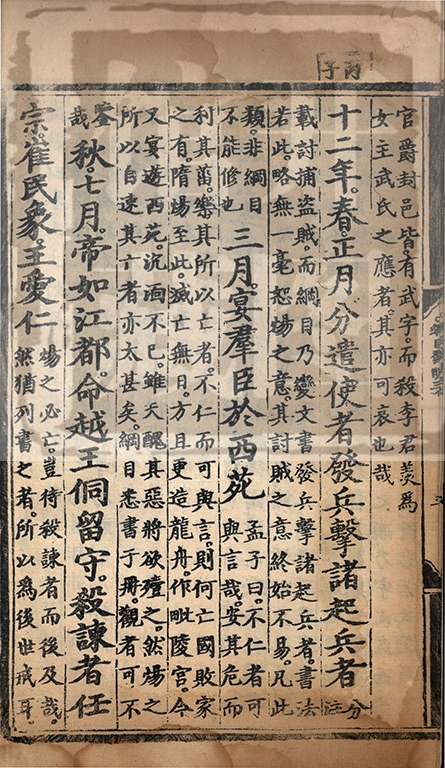 丙子
官爵封邑皆有武字。而殺李君羨爲
女主武氏之應者。其亦可哀也哉
十二年。春。正月。分遣使者發兵擊諸起兵者
分注
載討捕盜賊。而綱目乃變文書發兵擊諸起兵者。書法
若此。略無一毫恕煬之意。其討賊之意終始不易。凡此
類。非綱目
不能修也
三月。宴羣臣於西苑
孟子曰。不仁者可
與言哉。安其危而
利其菑。樂其所以亡者。不仁而可與言。則何亡國敗家
之有。隋煬至此。滅亡無日。方且更造龍舟。作毗陵宮。今
又宴遊西苑。沉湎不已。雖天醜其惡將欲殪之。然煬之
所以自速其亡者亦太甚矣。綱目悉書于冊。觀者可不
鑒哉
秋。七月。帝如江都。命越王侗留守。殺諫者任
宗。崔民象。王愛仁
煬之必亡。豈待殺諫者而後及哉。
然猶列書之者。所以爲後世戒耳。